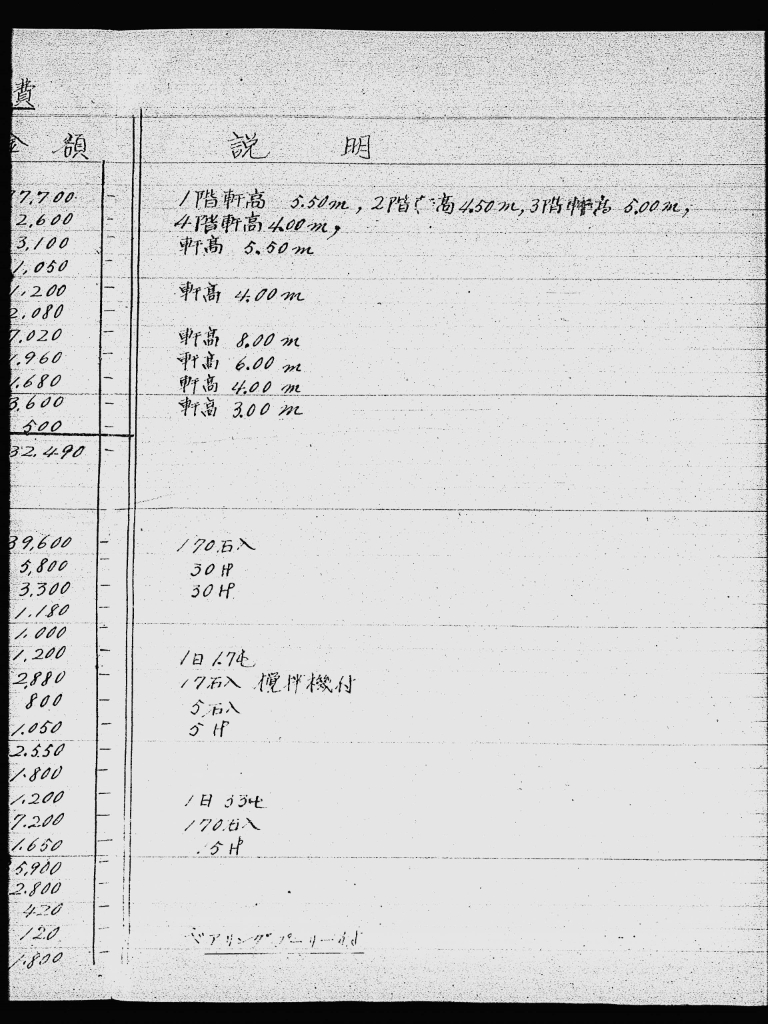 費
金 額 説 明
17,700 - 1階軒高 5.50m, 2階軒高4.50m, 3階軒高 5.00m,
2,600 - 4階軒高4.00m,
3,100 - 軒高 5.50m
1,050 -
1,200 - 軒高 4.00m
2,080 -
7,020 - 軒高 8.00m
1,960 - 軒高 6.00m
1,680 - 軒高 4.00m
3,600 - 軒高 3.00m
500 -
32,490 -
39,600 - 170石入
5,800 - 30HP
3,300 - 30HP
1,180 -
1,000 -
1,200 - 1日1.7屯
2,880 - 17石入 攪拌機付
800 - 5石入
1,050 - 5HP
2,550 -
1,800 -
1,200 - 1日 33屯
7,200 - 170石入
1,650 - 5HP
5,900 -
2,800 -
420 -
120 - ベアリングプーリー付
1,800 -